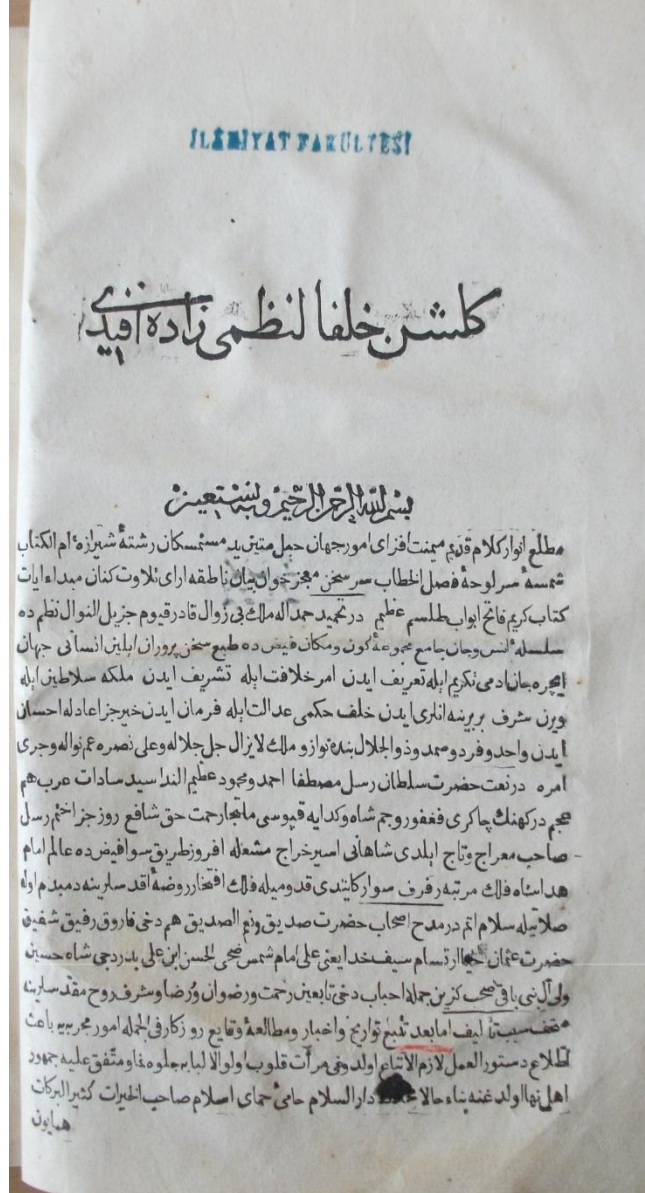 İLAHİYAT FAKÜLTESİ
كلشن خلفا لنظمى زاده افندى
بسم الله الرحمن الرحيم وبه نستعين
مطلع انوار كلام قديم ميمنت افزاى امور جهان حبل متين يد مستمسكان رشتهٔ شيرازهٔ ام الكتاب
شمسهٔ سر لوحهٔ فصل الخطاب سر سخن معجز خوان بيان ناطقه اراى تلاوت كنان مبداء ايات
كتاب كريم فاتح ابواب طلسم عظيم در تحميد حمد اله ملك بى زوال قادر قيوم جزيل النوال نظم ده
سلسلهٔ انس وجان جامع مجموعهٔ كون ومكان فيض ده طبع سخن پروران ايلين انسانى جهان
ايچره جان ادمى تكريم ايله تعريف ايدن امر خلافت ايله تشريف ايدن ملكه سلاطين ايله
ويرن شرف بربرينه انلرى ايدن خلف حكمى عدالت ايله فرمان ايدن خير جزا عادله احسان
ايدن واحد وفرد وصمد وذو الجلال بنده نواز و ملك لايزال جل جلاله وعلى نصره عم نواله وجرى
امره در نعت حضرت سلطان رسل مصطفا احمد ومحمود عظيم الندا سيد سادات عرب هم
عجم دركهنك چاكرى فغفور وجم شاه وكدايه قپوسى ملتجا رحمت حق شافع روز جزا ختم رسل
صاحب معراج وتاج ايلدى شاهانى اسير خراج مشعله افروز طريق سوا فيض ده عالم امام
هدا شاه فلك مرتبه رفرف سوار كايتدى قدوميله فلك افتخار روضهٔ اقدسلرينه دمبدم اوله
صلاتيله سلام اتم در مدح اصحاب حضرت صديق ونعم الصديق هم دخى فاروق رفيق شفيق
حضرت عثمان حيا ارتسام سيف خدا يعنى على امام شمس ضحى الحسن ابن على بدر دجى شاه حسين
ولى آل نبى باقى صحب كزين جملهٔ احباب دخى تابعين رحمت ورضوان ورضا وشرف روح مقدسلرينه
متحف سبب تاليف اما بعد تتبع تواريخ واخبار ومطالعهٔ وقايع روزكار فى الجمله امور مجربيه باعث
اطلاع دستور العمل لازم الاتباع اولدوغى مرآت قلوب اولو الالبابه جلوه نما ومتفق عليه جمهور
اهل نها اولدغنه بناء حالا دار السلام حامئ حماى اسلام صاحب الخيرات كثير البركات
همايون